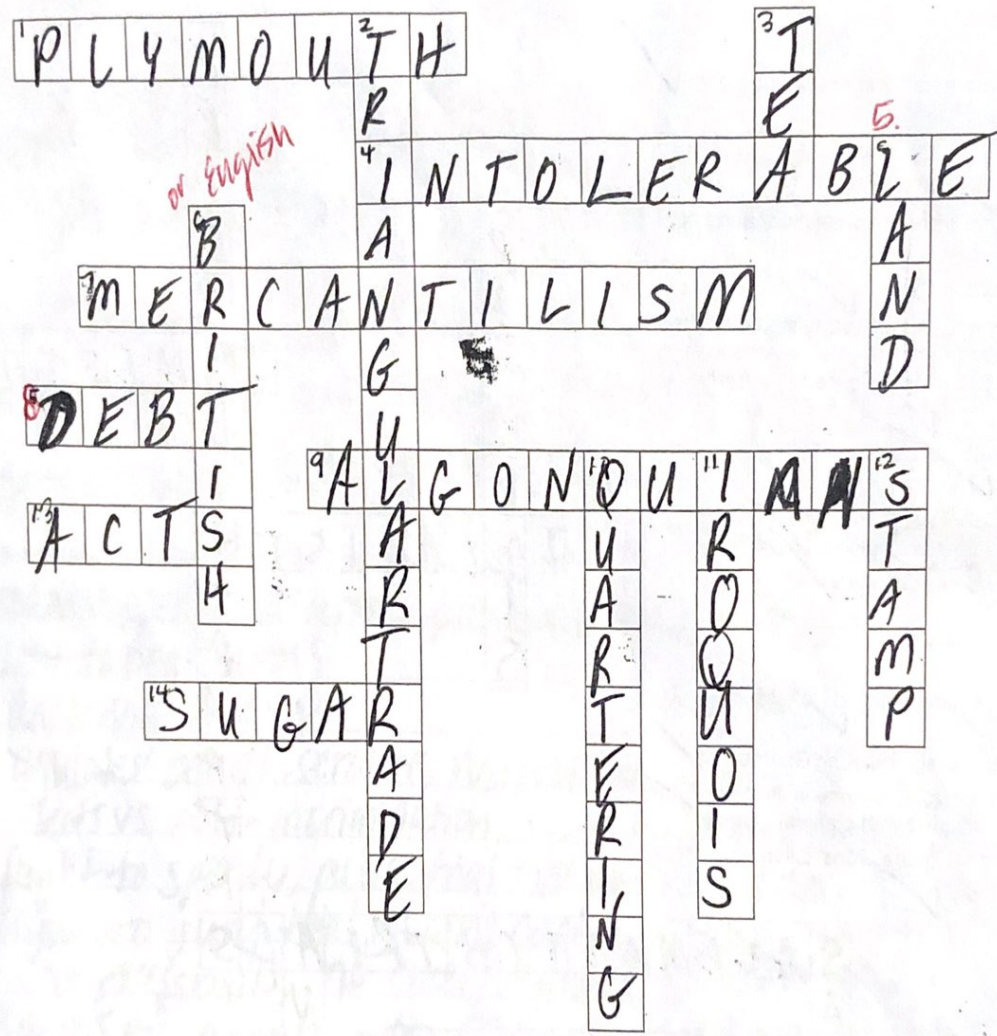 1 PLYMOUTH
2 TRIANGULAR TRADE
3 TEA
5.
or English
4 INTOLERABLE
5 LAND
6 BRITISH
7 MERCANTILISM
8 DEBT
9 ALGONQUIANS
10 QUARTERING
11 IROQUOIS
12 STAMP
13 ACTS
14 SUGAR